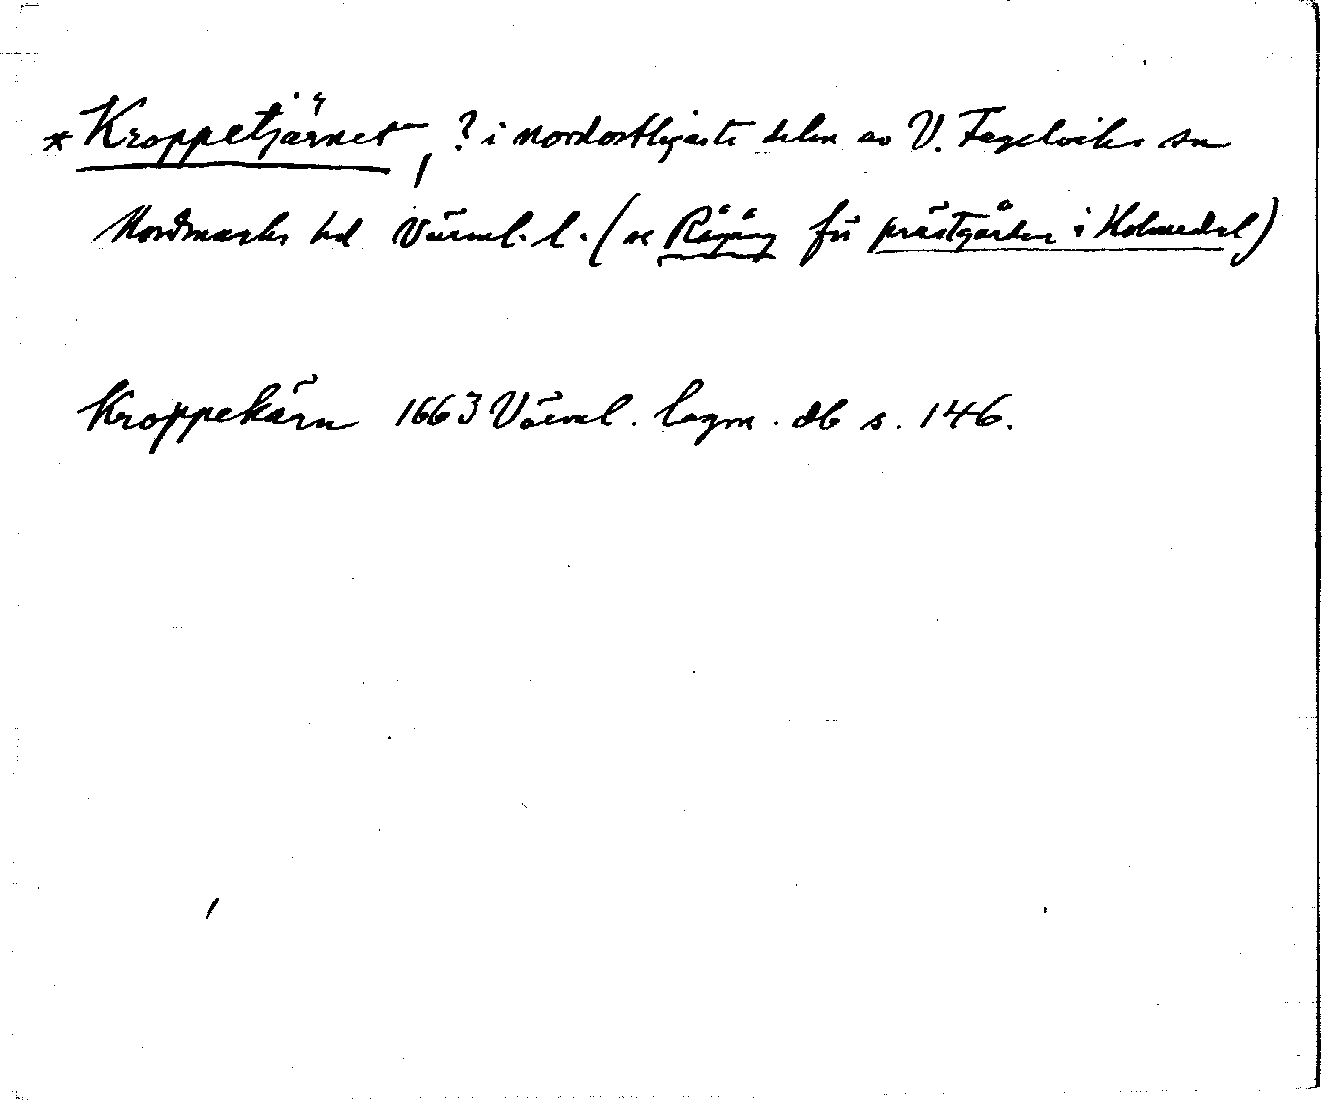 * Kroppetjärnet, ? i nordostligaste delen av V. Fågelviks sn
Nordmarks hd Värml. l. (se Rågång för prästgården i Holmedal)
Kroppekärn 1663 Värml. lagm. db s. 146.